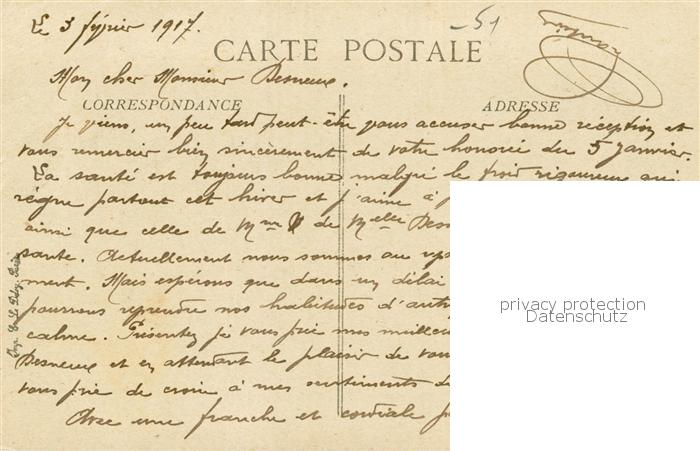 Le 3 février 1917.
51
CARTE POSTALE
Mon cher Monsieur Desneux.
CORRESPONDANCE
ADRESSE
Je viens, un peu tard peut-être vous accuser bonne réception et
vous remercier bien sincèrement de votre honorée du 5 Janvier.
La santé est toujours bonne malgré le froid rigoureux qui
règne partout cet hiver et j'aime à
ainsi que celle de Mme de Melle
santé. Actuellement nous sommes au
ment. Mais espérons que dans un délai
pourrons reprendre nos habitudes
calme. Présentez je vous prie mes
Desneux et en attendant le plaisir de
vous prie de croire à mes sentiments
Avec une franche et cordiale
privacy protection
Datenschutz